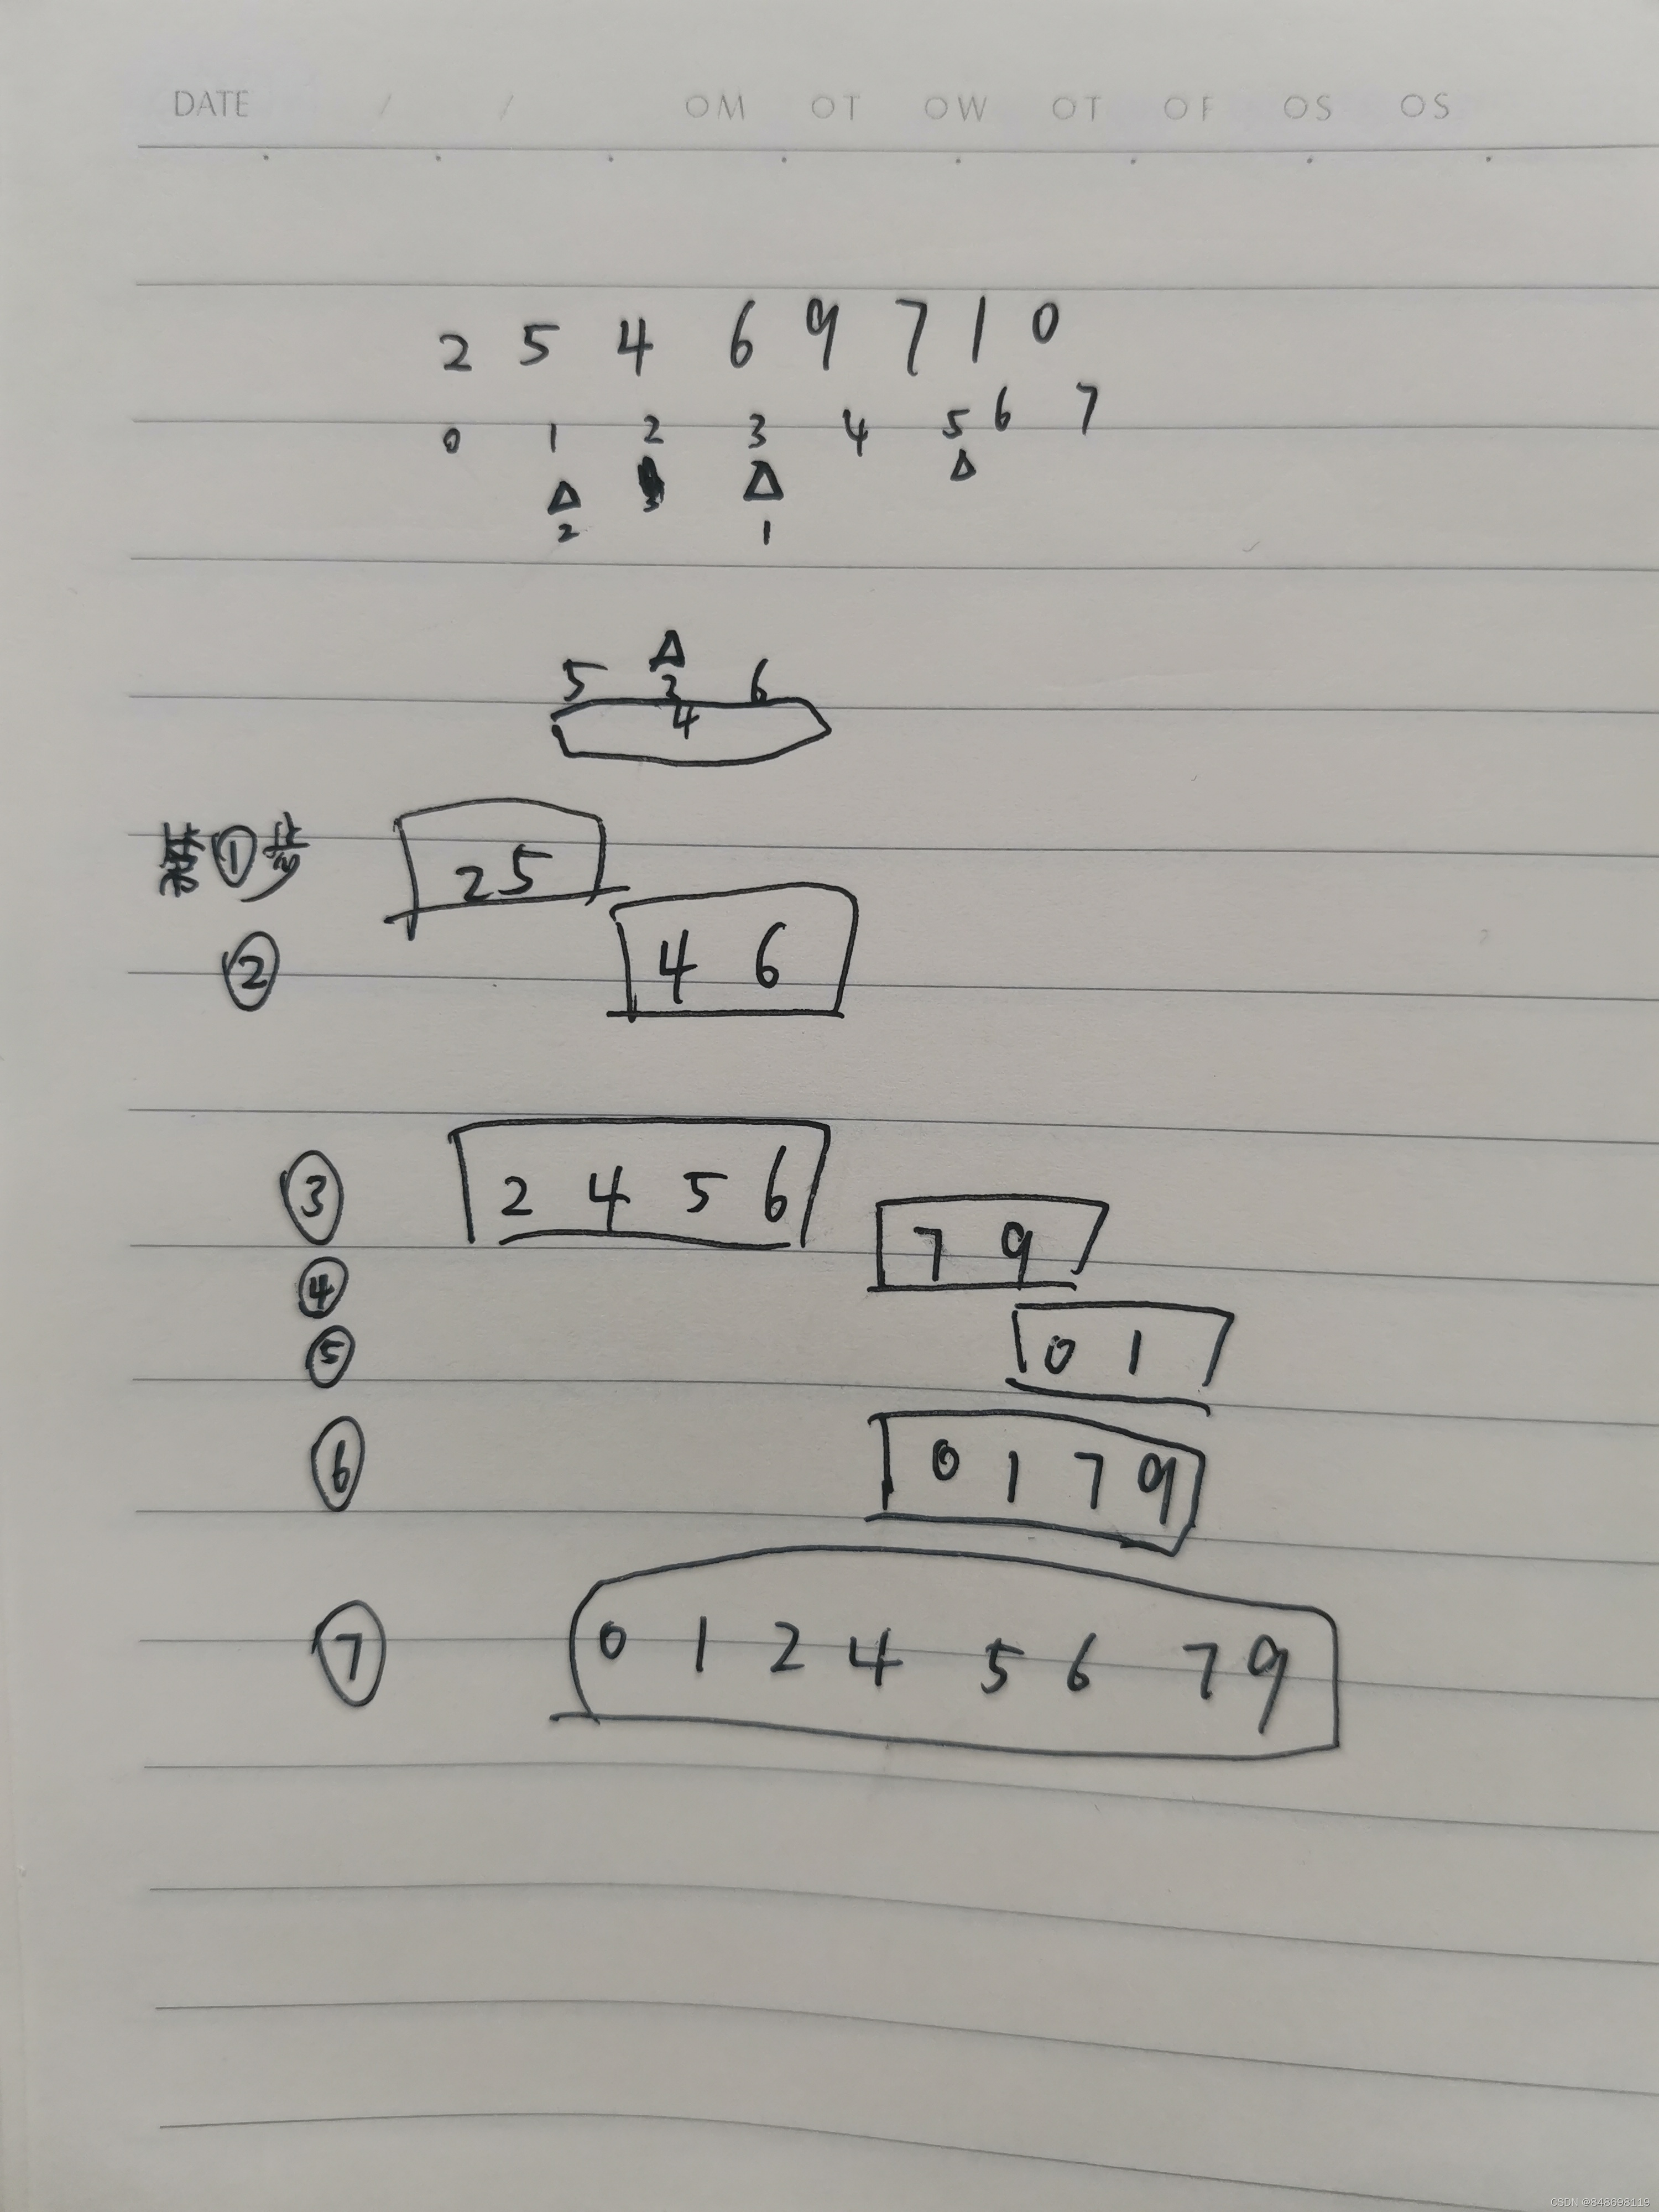 DATE / / OM OT OW OT OF OS OS
2 5 4 6 9 7 1 0
0 1 2 3 4 5 6 7
Δ Δ Δ
2 1
Δ
5 2 6
4
第①步 2 5
② 4 6
③ 2 4 5 6
④ 7 9
⑤ 0 1
⑥ 0 1 7 9
⑦ 0 1 2 4 5 6 7 9
CSDN @848698119